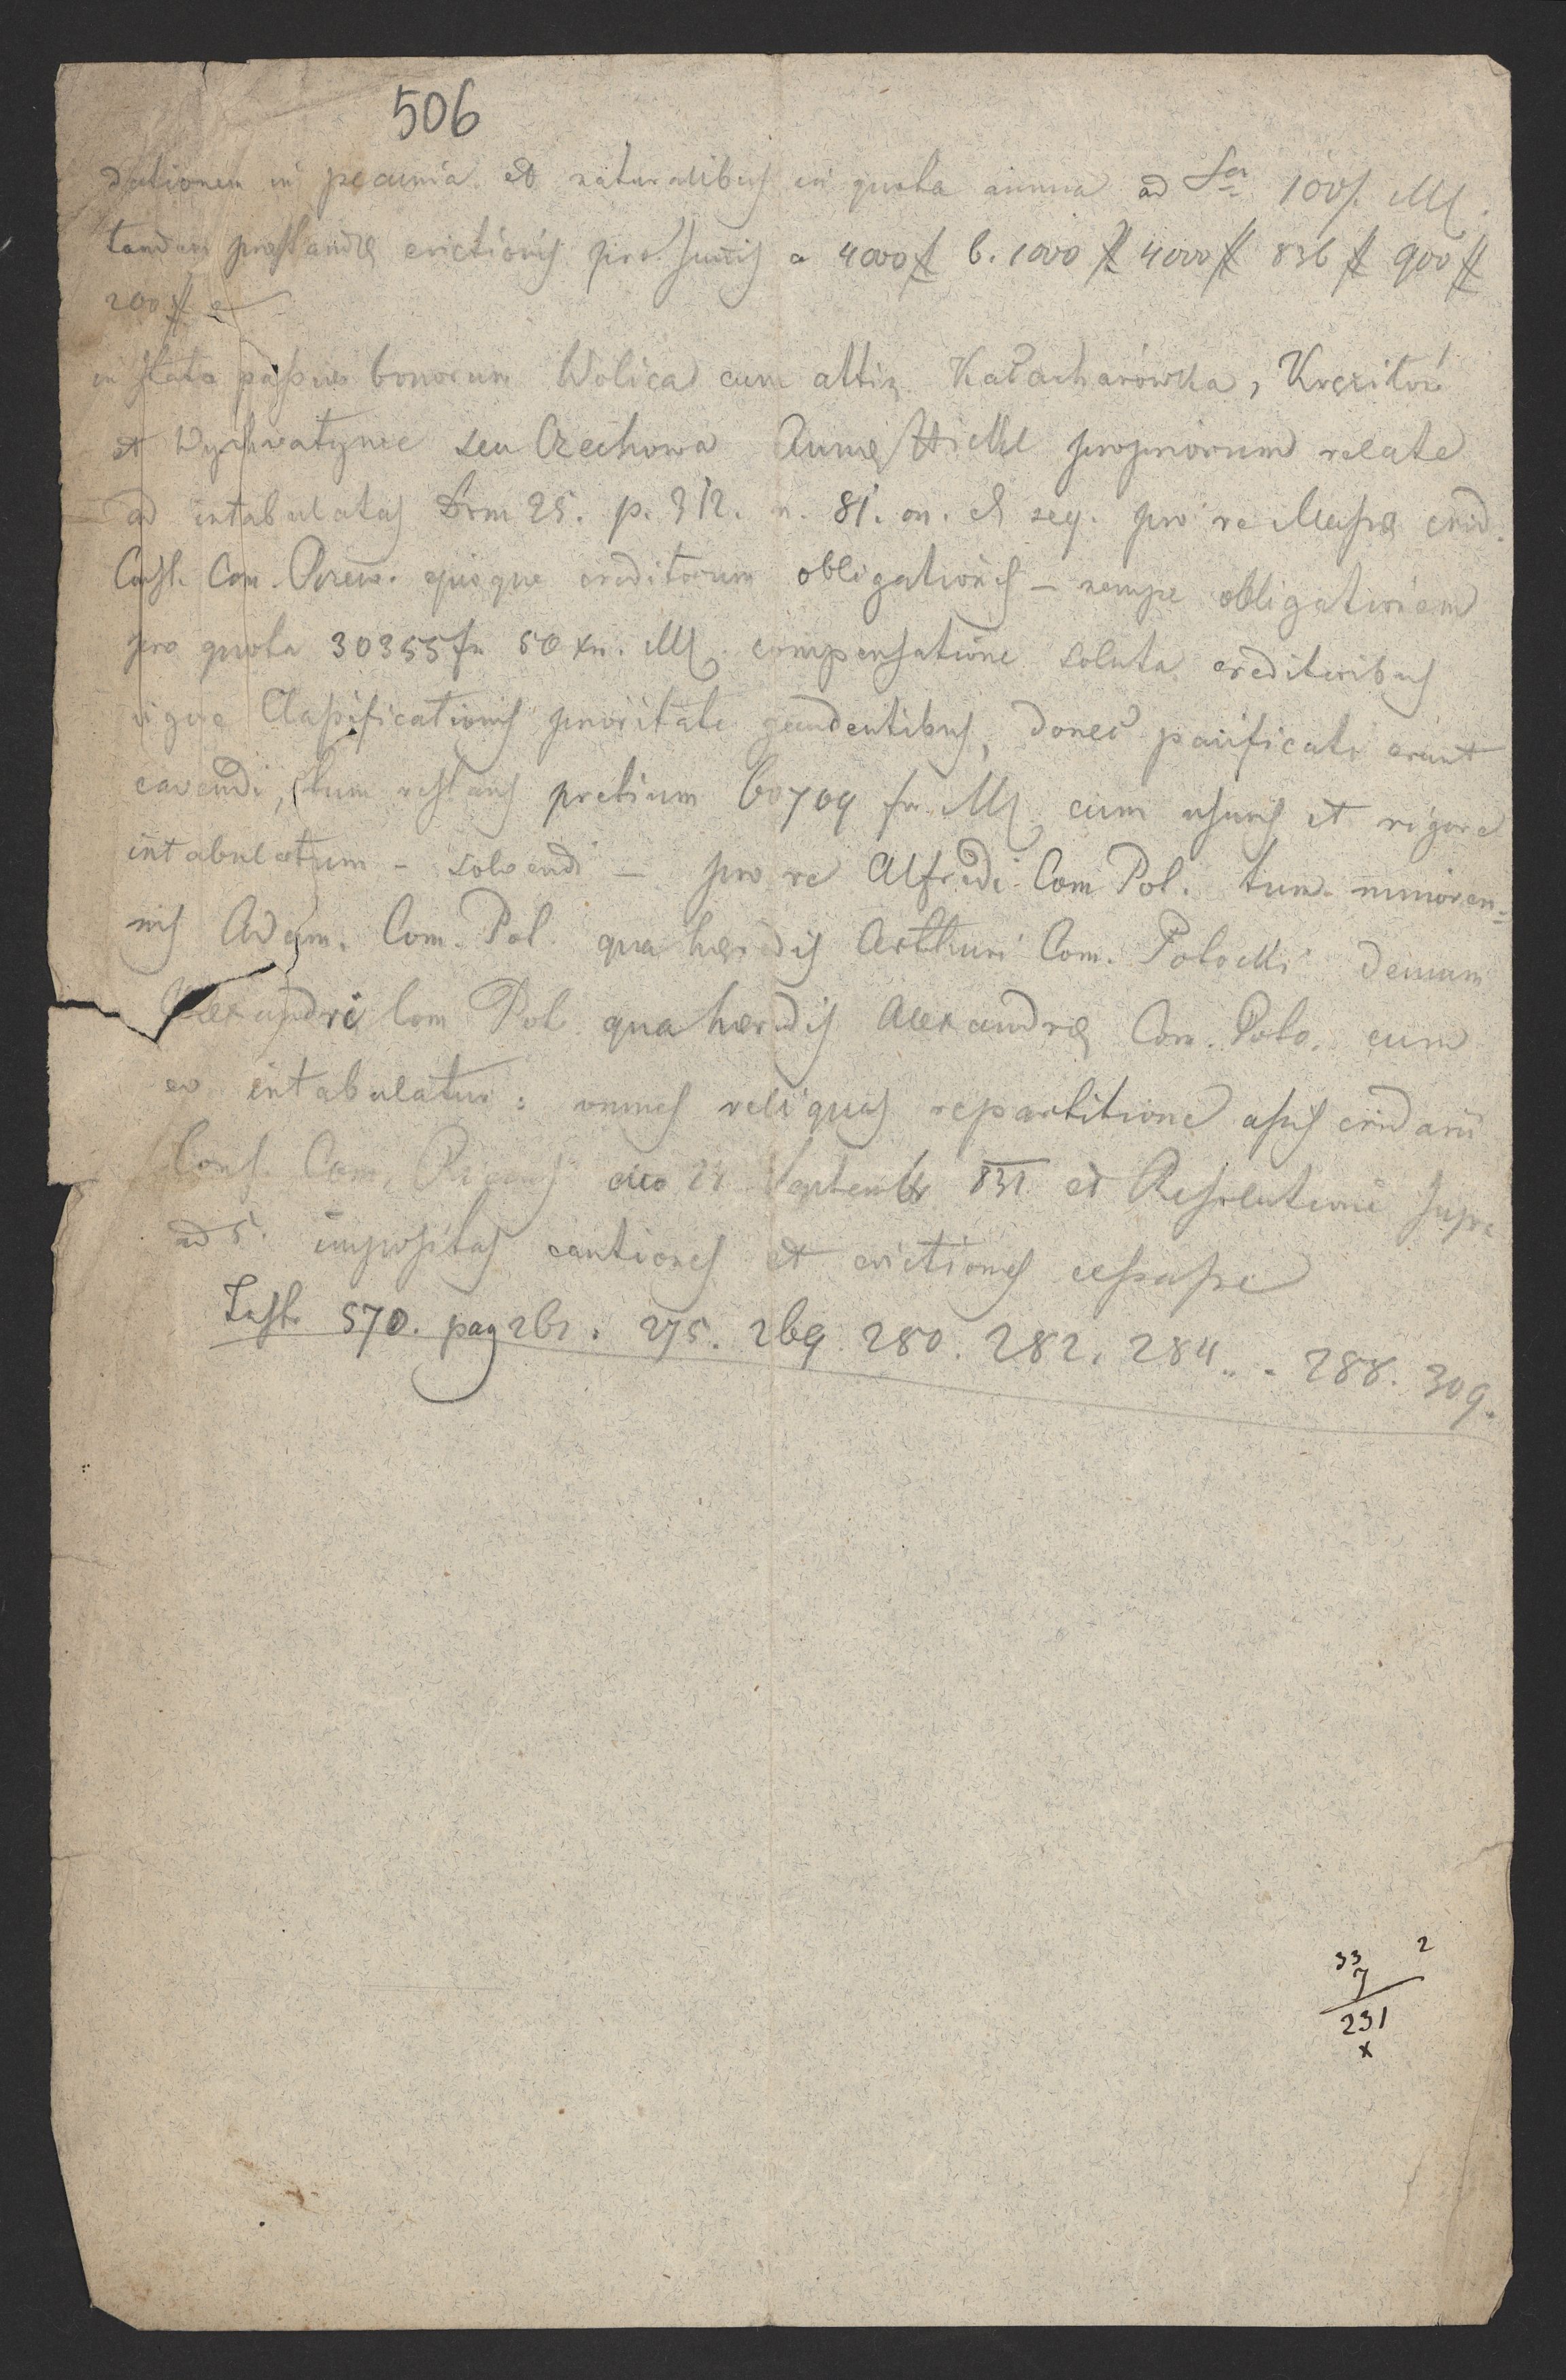 506
dationem in pecunia et naturalibus in quota annua ad 100 f. M.
tandem præstandæ evictionis pro summis a 4000 f b. 1000 f 4000 f 836 f 900 f
200 f
in statu passivo bonorum Wolica cum attin. Kałacharówka, Kręciłów
et Wychwatynce seu Orzechowa Annæ Hickel propriorum relate
ad intabulatas Dom 25. p. 312. n. 81. on. et seq. pro re Massæ crid.
Const. Com. Rzew. ejusque creditorum obligationes – nempe obligationem
pro quota 30355 fr 50 xr. M. compensatione soluta creditoribus
Classificationis prioritate gaudentibus, donec pacificati erunt
cavendi, tum restans pretium 60709 fr M. cum usuris et rigore
intabulatum – solvendi – pro re Alfredi Com Pol. tum minoren=
nis Adam. Com. Pol. qua hæredis Arthuri Com. Potocki demum
Alexandri Com Pol. qua hæredis Alexandræ Com. Poto. cum
eo intabulatur: omnes reliquas repartitione cridarii
Const. Com. Rzewus dto 24 Septembr 831 et Resolutione supr
ad 5. impositas cautiones et evictiones cessasse
Instr 570. pag 262. 275. 269. 280. 282. 284. . 288. 309.
33 2
7
231
x